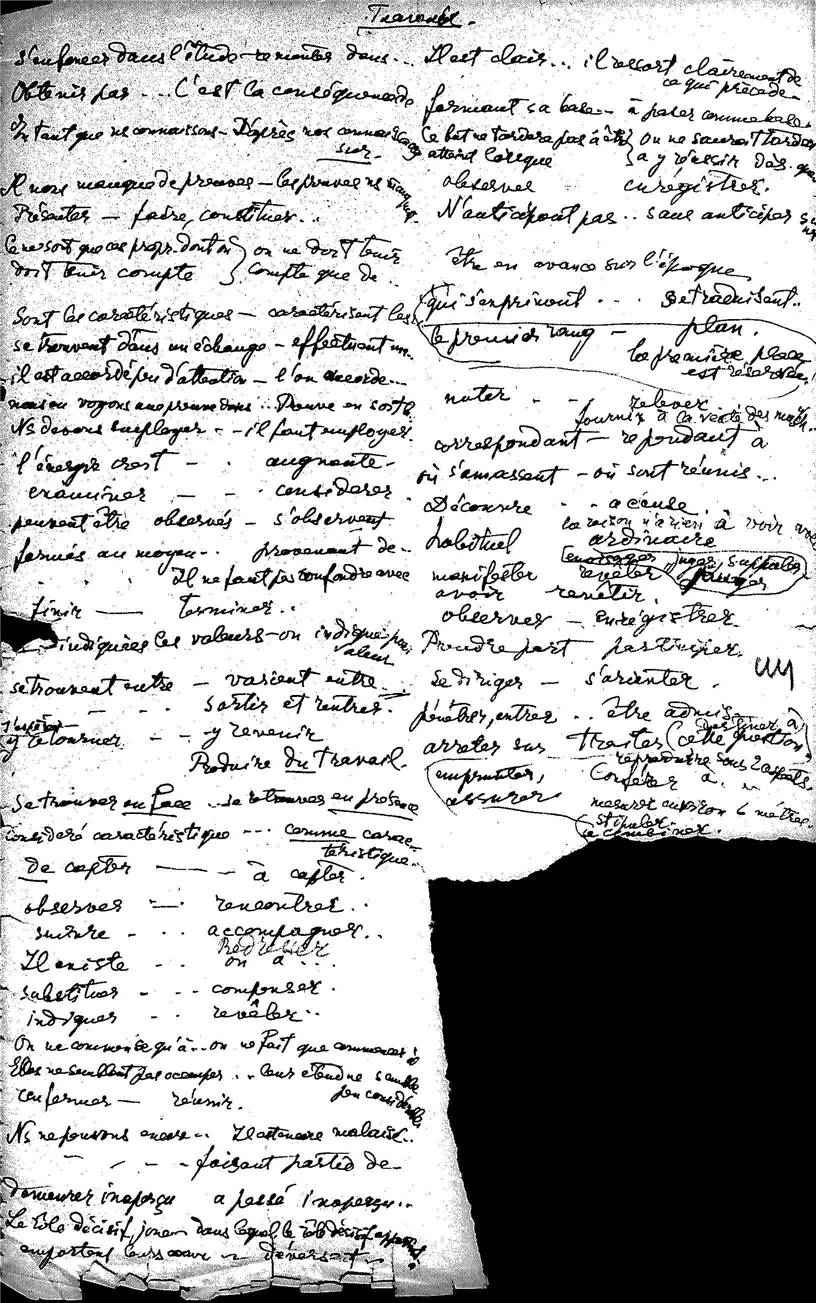 s'enfoncer dans l'étude - remonter dans...
Obtenir pas ... C'est la conséquence de
En tant que ns connaissons - D'après nos connaissances
sur -
Il nous manque de preuves - les preuves ns manquent
Présenter - faire, constituer...
Ce ne sont que ces propr. dont on } on ne doit tenir
doit tenir compte } compte que de..
Sont les caractéristiques - caractérisent les
se trouvent dans un échange - effectuent un..
il est accordé peu d'attention - l'on accorde...
nous en voyons une preuve dans .. Preuve en sorte
Ns devons employer - - il faut employer.
l'énergie croît - . augmente -
examiner - - . considerer
peuvent être observés - s'observent
formés au moyen -. provenant de -..
Il ne faut pas confondre avec
finir — terminer..
indiquées les valeurs - on indique par
valeur
se trouvent entre - varient entre
- - - sortir et rentrer.
y retourner - - - y revenir
Produire du travail.
Se trouver en face .. se retrouver en présence
considéré caractéristique --- comme carac-
téristique.
de capter — - - à capter.
observer — . rencontrer..
suivre - . . accompagner..
Redresser
Il existe - . . on a ...
substituer - - . compenser.
indiquer - . révéler..
On ne commence qu'à .. on ne fait que commencer à
Elles ne semblent pas occuper ... leur étendue semble
peu considérable
renfermer — réunir.
Ns ne pouvons encore .. Il est encore malaisé..
- - - - faisant partie de -
demeurer inaperçu a passé inaperçu..
Le rôle décisif, jouer dans lequel le rôle décisif appartient
emportent leurs eaux ~ déversent -
Il est clair... il ressort clairement de
ce qui précède -
formant sa base - - à poser comme base.
Ce but ne tardera pas à être } On ne saurait tarder
atteint lorsque } a y réussir dès que
observer enrégistrer.
N'anticipant pas .. sans anticiper sur
être en avance sur l'époque
qui s'expriment ... se traduisent..
le premier rang - plan.
la première place
est réservée!
noter - - relever
fournir
correspondant - répondant à
où s'amassent - où sont réunis...
Découvre - . accuse.
la raison n'a rien à voir
habituel ordinaire
envisager juger, supputer
manifester révéler
avoir revêtir.
observer - enrégistrer
Prendre part participer.
se diriger - s'orienter.
pénétrer, entrer .. être admis
destiner à
arrêter sur traiter (cette question)
reproduire sous 2 aspects
emprunter, Conférer à . ..
assurer mesurer environ 6 mètres
stipuler
à combiner.